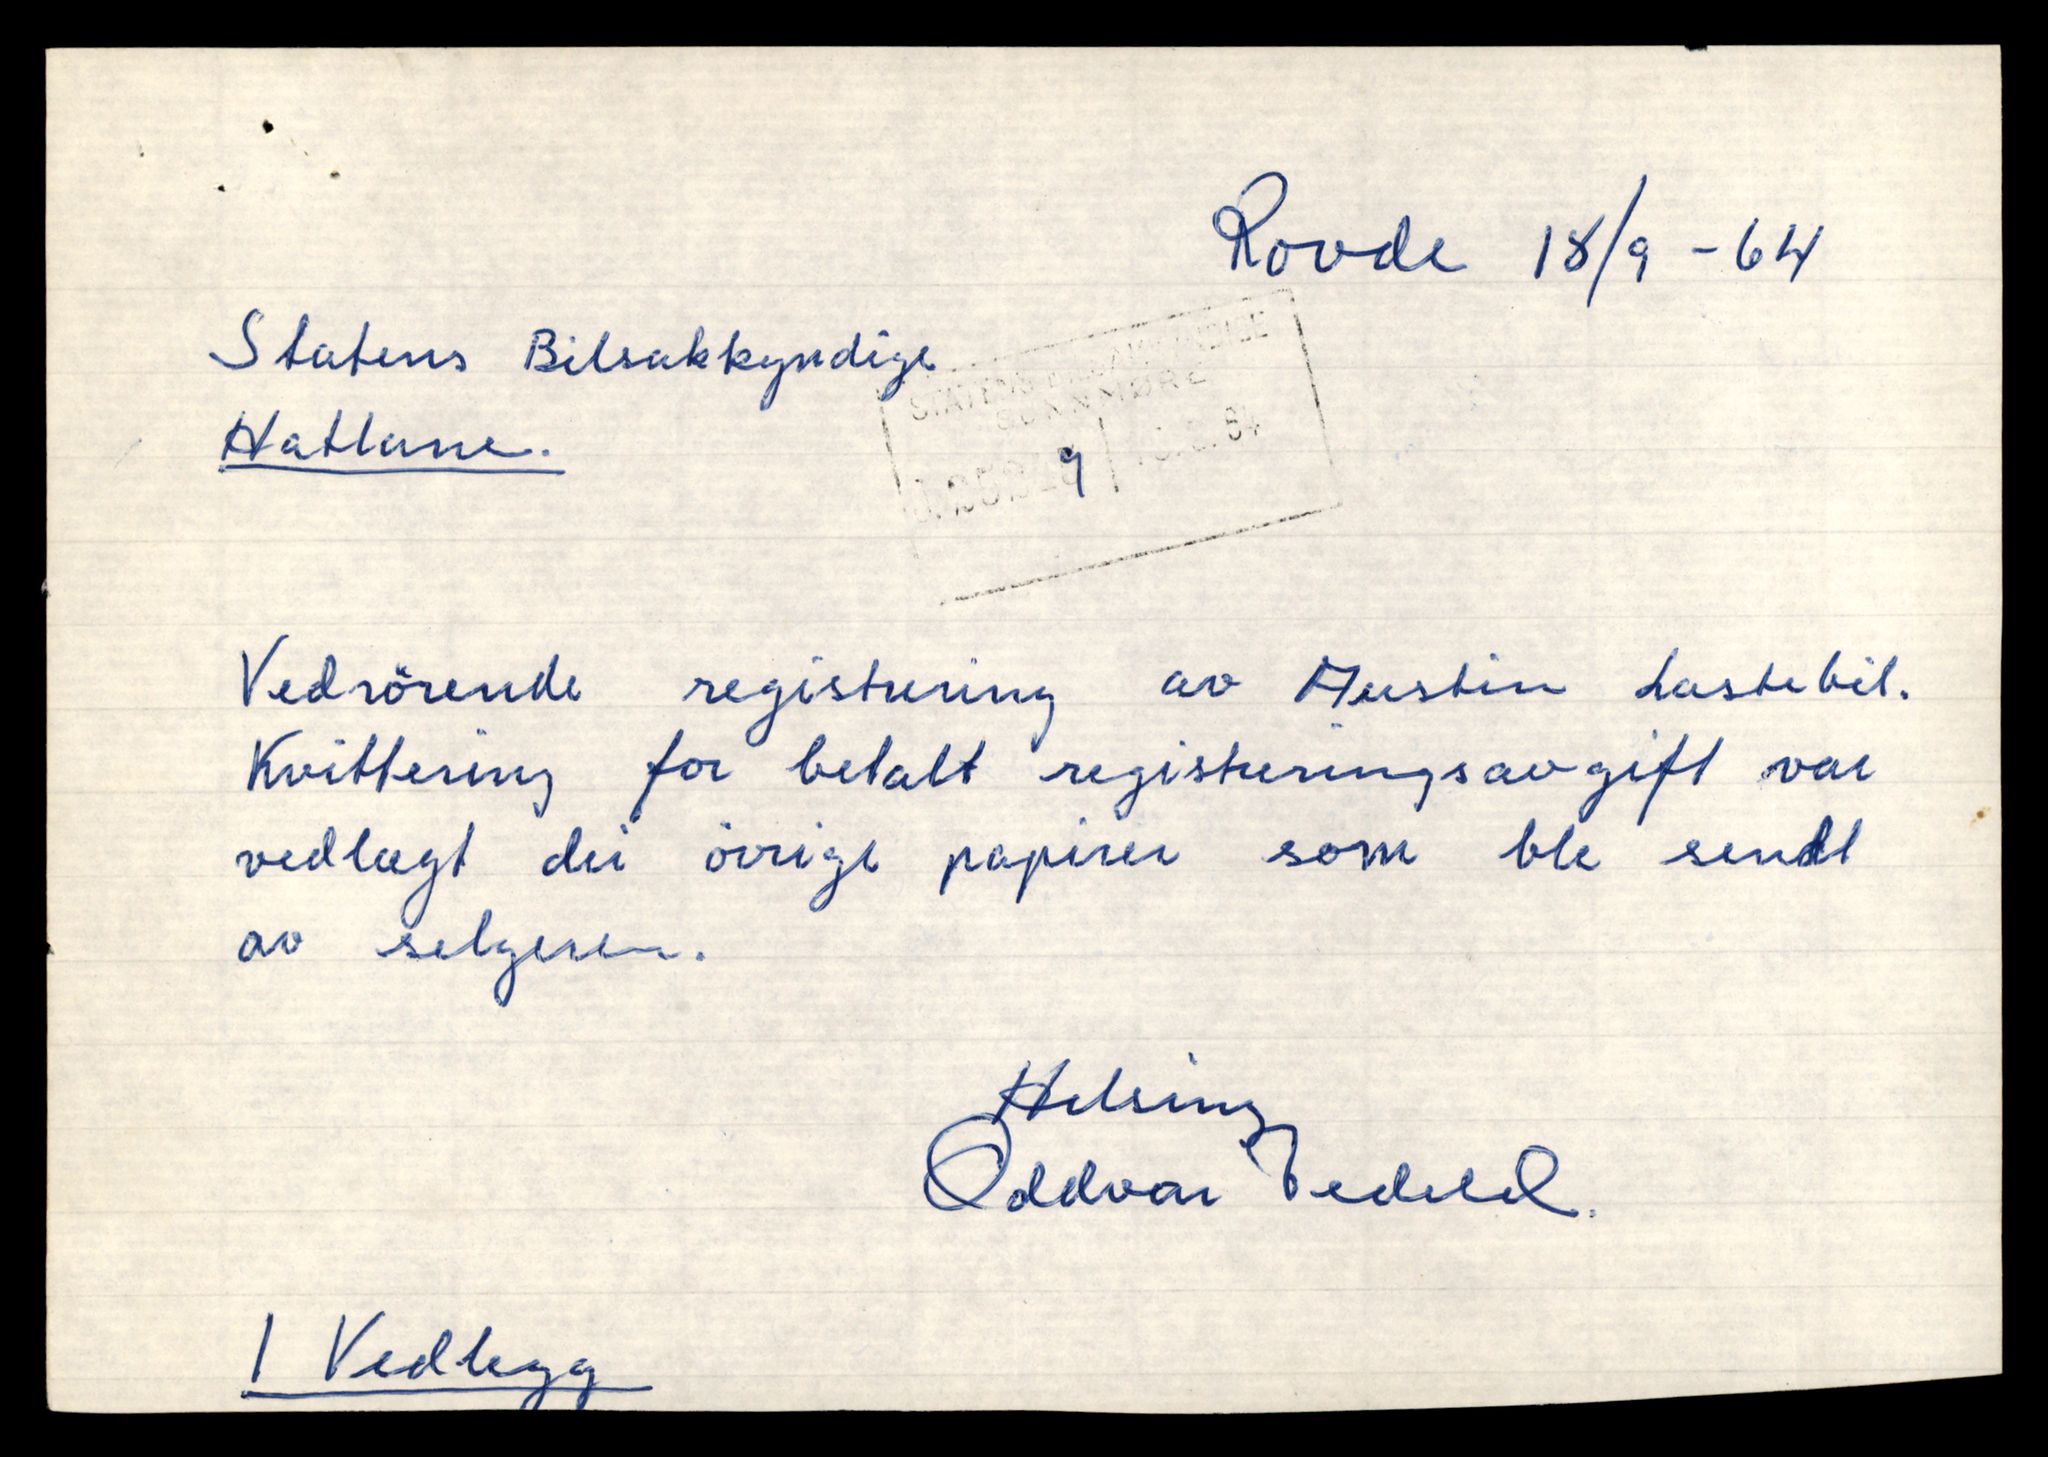 Rovde 18/9 - 64
Statens Bilsakkyndige
Hatlane.
STATENS BILSAKKYNDIGE
SUNNMØRE
9 64
Vedrörende registrering av Austin Lastebil.
Kvittering for betalt registreringsavgift var
vedlagt dei övrige papirer som ble sendt
av selgeren.
Helsing
Oddvar Vedeld.
1 Vedlegg